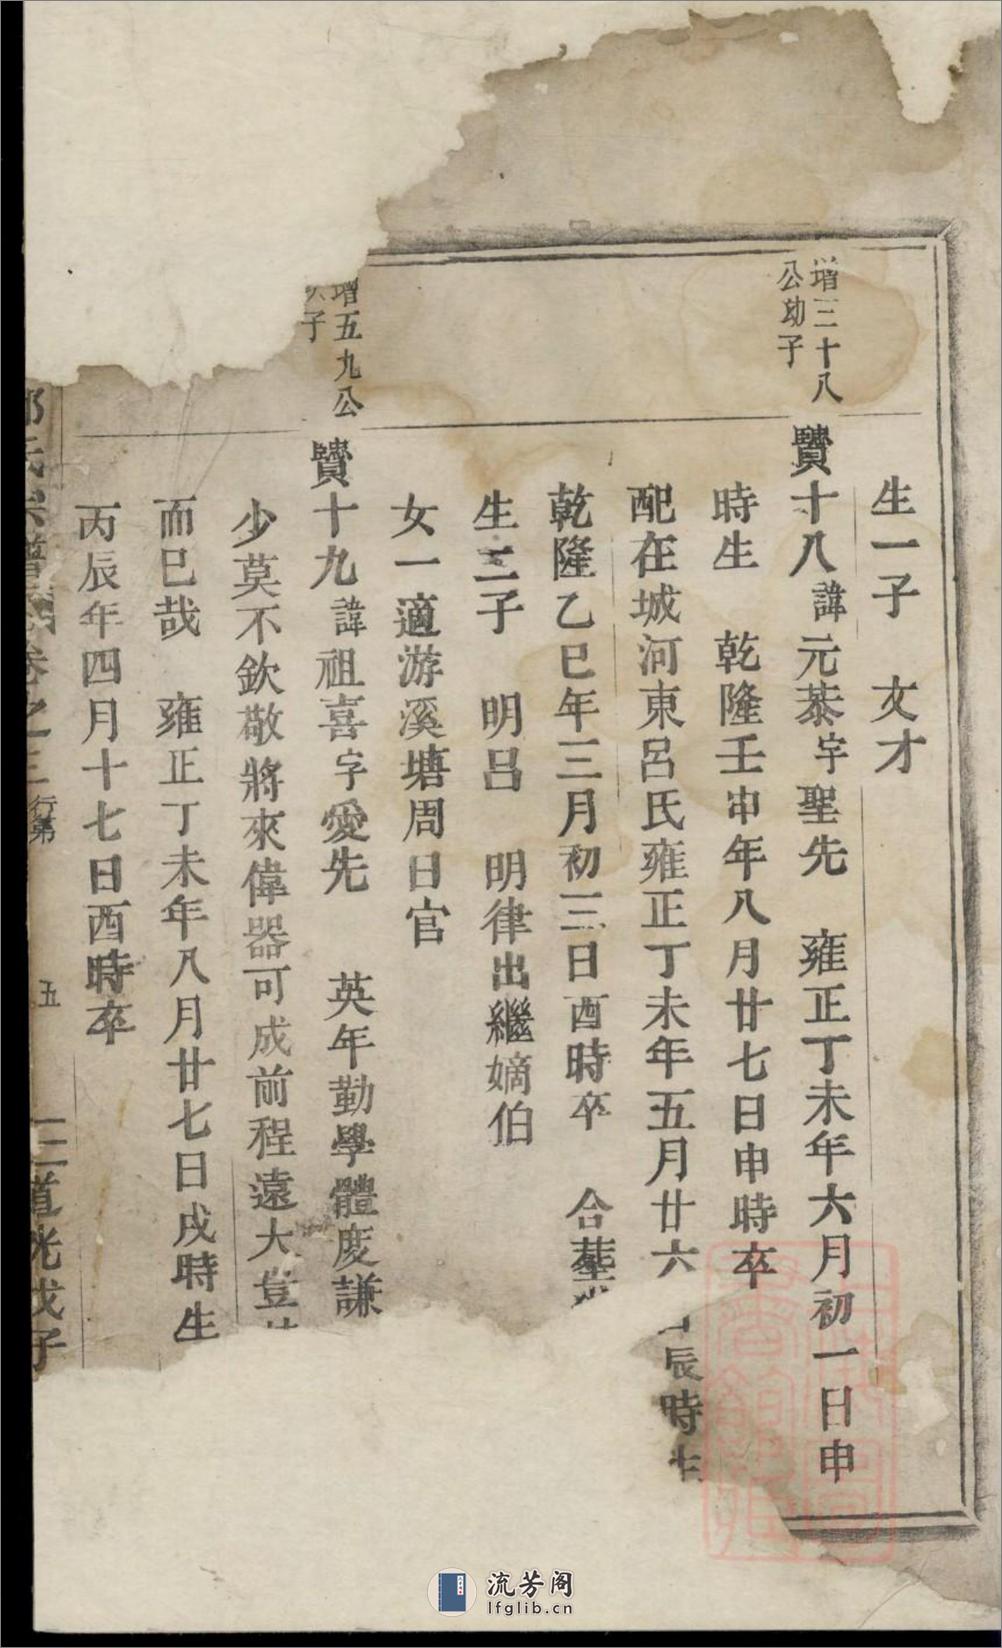 生一子　文才
增三十八
公幼子
贒十八諱元泰字聖先　雍正丁未年六月初一日申
時生　乾隆壬申年八月廿七日申時卒
配在城河東呂氏雍正丁未年五月廿六日辰時生
乾隆乙巳年三月初三日酉時卒　合塟
生二子　明呂　明律出繼嫡伯
女一適游溪塘周日官
增五九公
子
贒十九諱祖喜字愛先　英年勤學體度謙
少莫不欽敬將來偉器可成前程遠大豈
而已哉　雍正丁未年八月廿七日戌時生
丙辰年四月十七日酉時卒
氏宗譜　卷之三　行第　五　道光戊子
流芳阁
lfglib.cn